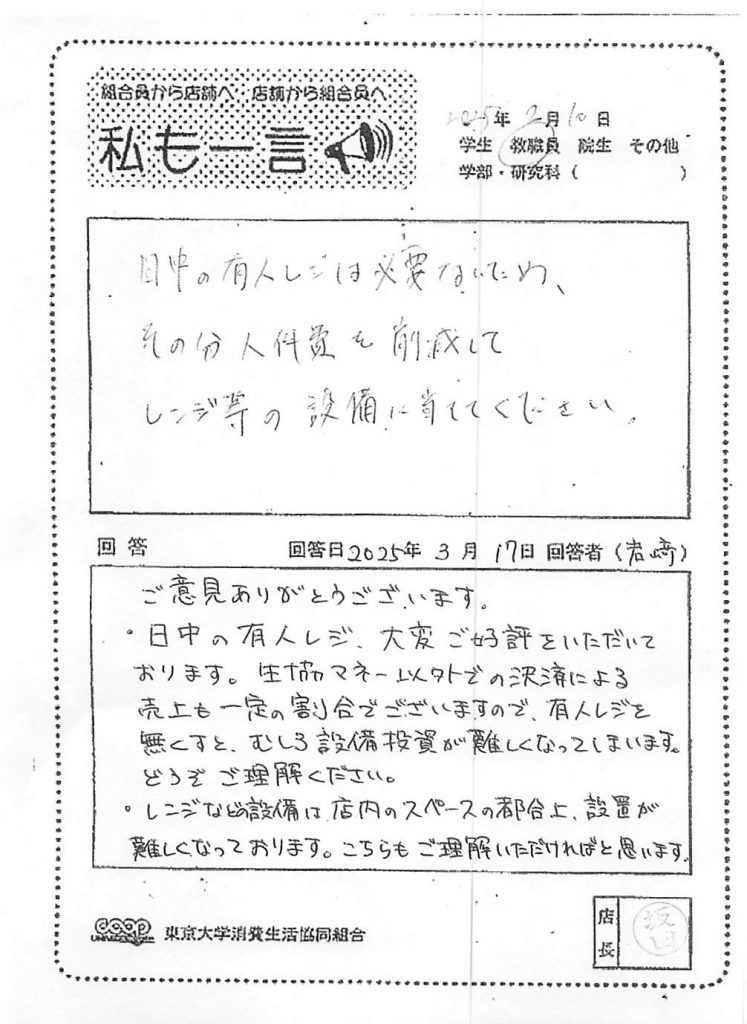 組合員から店舗へ 店舗から組合員へ
私も一言
2025年 2月 10日
学生 教職員 院生 その他
学部・研究科（ ）
日中の有人レジは必要ないため、
その分人件費を削減して
レンジ等の設備に当ててください。
回答 回答日2025年 3月 17日 回答者（岩﨑）
ご意見ありがとうございます。
・日中の有人レジ、大変ご好評をいただいて
おります。生協マネー以外での決済による
売上も一定の割合でございますので、有人レジを
無くすと、むしろ設備投資が難しくなってしまいます。
どうぞご理解ください。
・レンジなどの設備は店内のスペースの都合上、設置が
難しくなっております。こちらもご理解いただければと思います。
coop 東京大学消費生活協同組合
店長